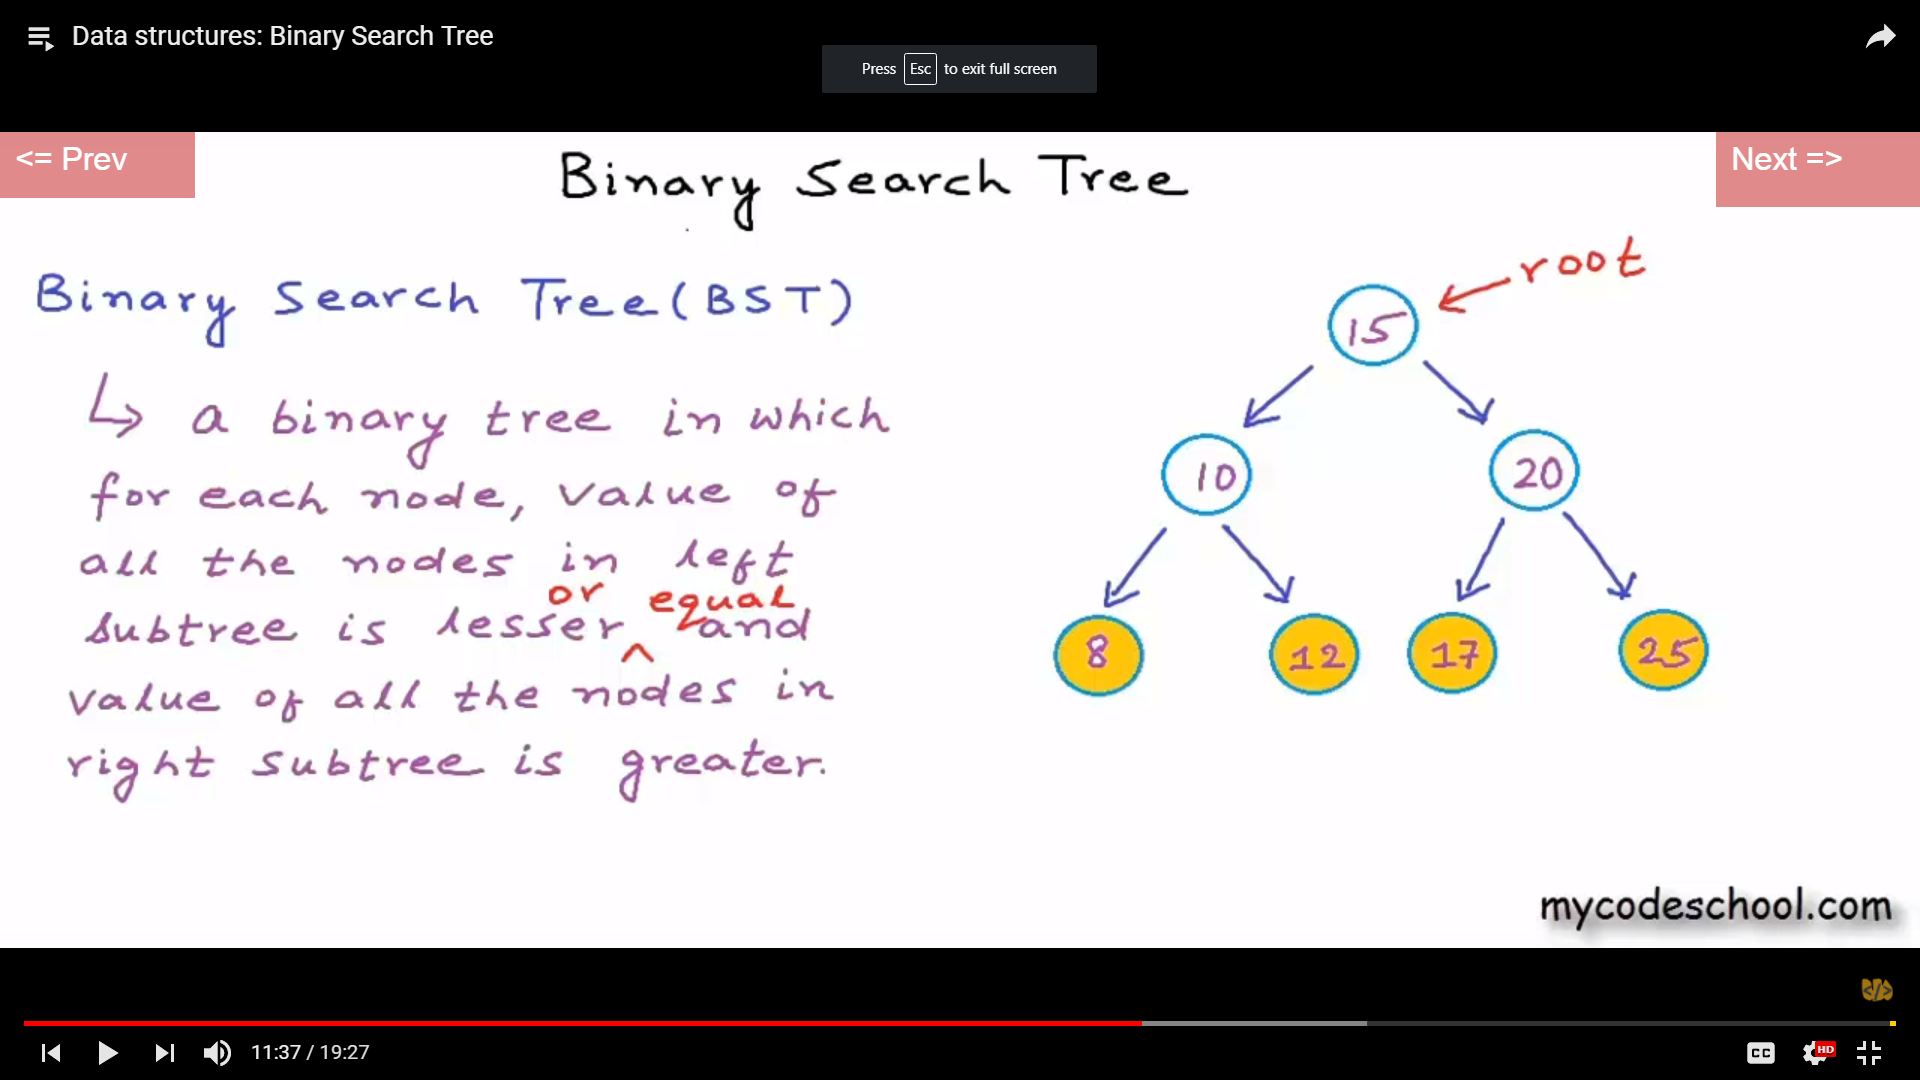 Data structures: Binary Search Tree
Press Esc to exit full screen
<= Prev
Next =>
Binary Search Tree
Binary Search Tree (BST)
a binary tree in which
for each node, value of
all the nodes in left
or equal
subtree is lesser ^ and
value of all the nodes in
right subtree is greater.
root
15
10
20
8
12
17
25
mycodeschool.com
</>
11:37 / 19:27
CC
HD